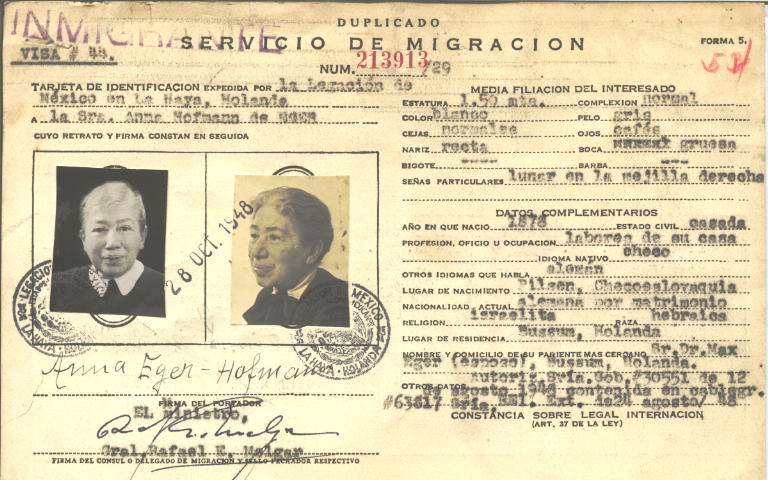 INMIGRANTE
DUPLICADO
VISA # 44.
SERVICIO DE MIGRACION
FORMA 5.
NUM. 213913/29
TARJETA DE IDENTIFICACION EXPEDIDA POR la Legación de
México en La Haya, Holanda
A la Sra. Anna Hofmann de EGER
CUYO RETRATO Y FIRMA CONSTAN EN SEGUIDA
28 OCT. 1948
Anna Eger-Hofmann
FIRMA DEL PORTADOR
El Ministro,
Gral. Rafael E. Melgar
FIRMA DEL CONSUL O DELEGADO DE MIGRACION Y SELLO FECHADOR RESPECTIVO
MEDIA FILIACION DEL INTERESADO
ESTATURA 1.50 mts. COMPLEXION normal
COLOR blanco PELO gris
CEJAS normales OJOS cafés
NARIZ recta BOCA gruesa
BIGOTE --- BARBA ---
SEÑAS PARTICULARES lunar en la mejilla derecha
DATOS COMPLEMENTARIOS
AÑO EN QUE NACIO 1878 ESTADO CIVIL casada
PROFESION, OFICIO U OCUPACION labores de su casa
IDIOMA NATIVO checo
OTROS IDIOMAS QUE HABLA alemán
LUGAR DE NACIMIENTO Pilsen, Checoslovaquia
NACIONALIDAD ACTUAL alemana por matrimonio
RELIGION israelita RAZA hebraica
LUGAR DE RESIDENCIA Bussum, Holanda
NOMBRE Y DOMICILIO DE SU PARIENTE MAS CERCANO Sr. Dr. Max
Eger (esposo), Bussum, Holanda.
OTROS DATOS autoriz. Sría. Gob. 230551 de 12
de agosto 1948 contenida en cablegr.
#63617 Sría. REl. Ext. de 24 agosto/48
CONSTANCIA SOBRE LEGAL INTERNACION
(ART. 37 DE LA LEY)